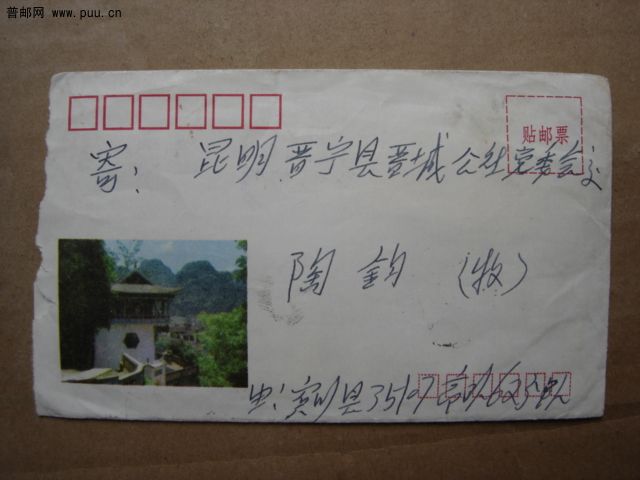 普邮网 www.puu.cn
贴邮票
寄：昆明晋宁县晋城公社党委会交
陶钧（收）
宾川县35197部队